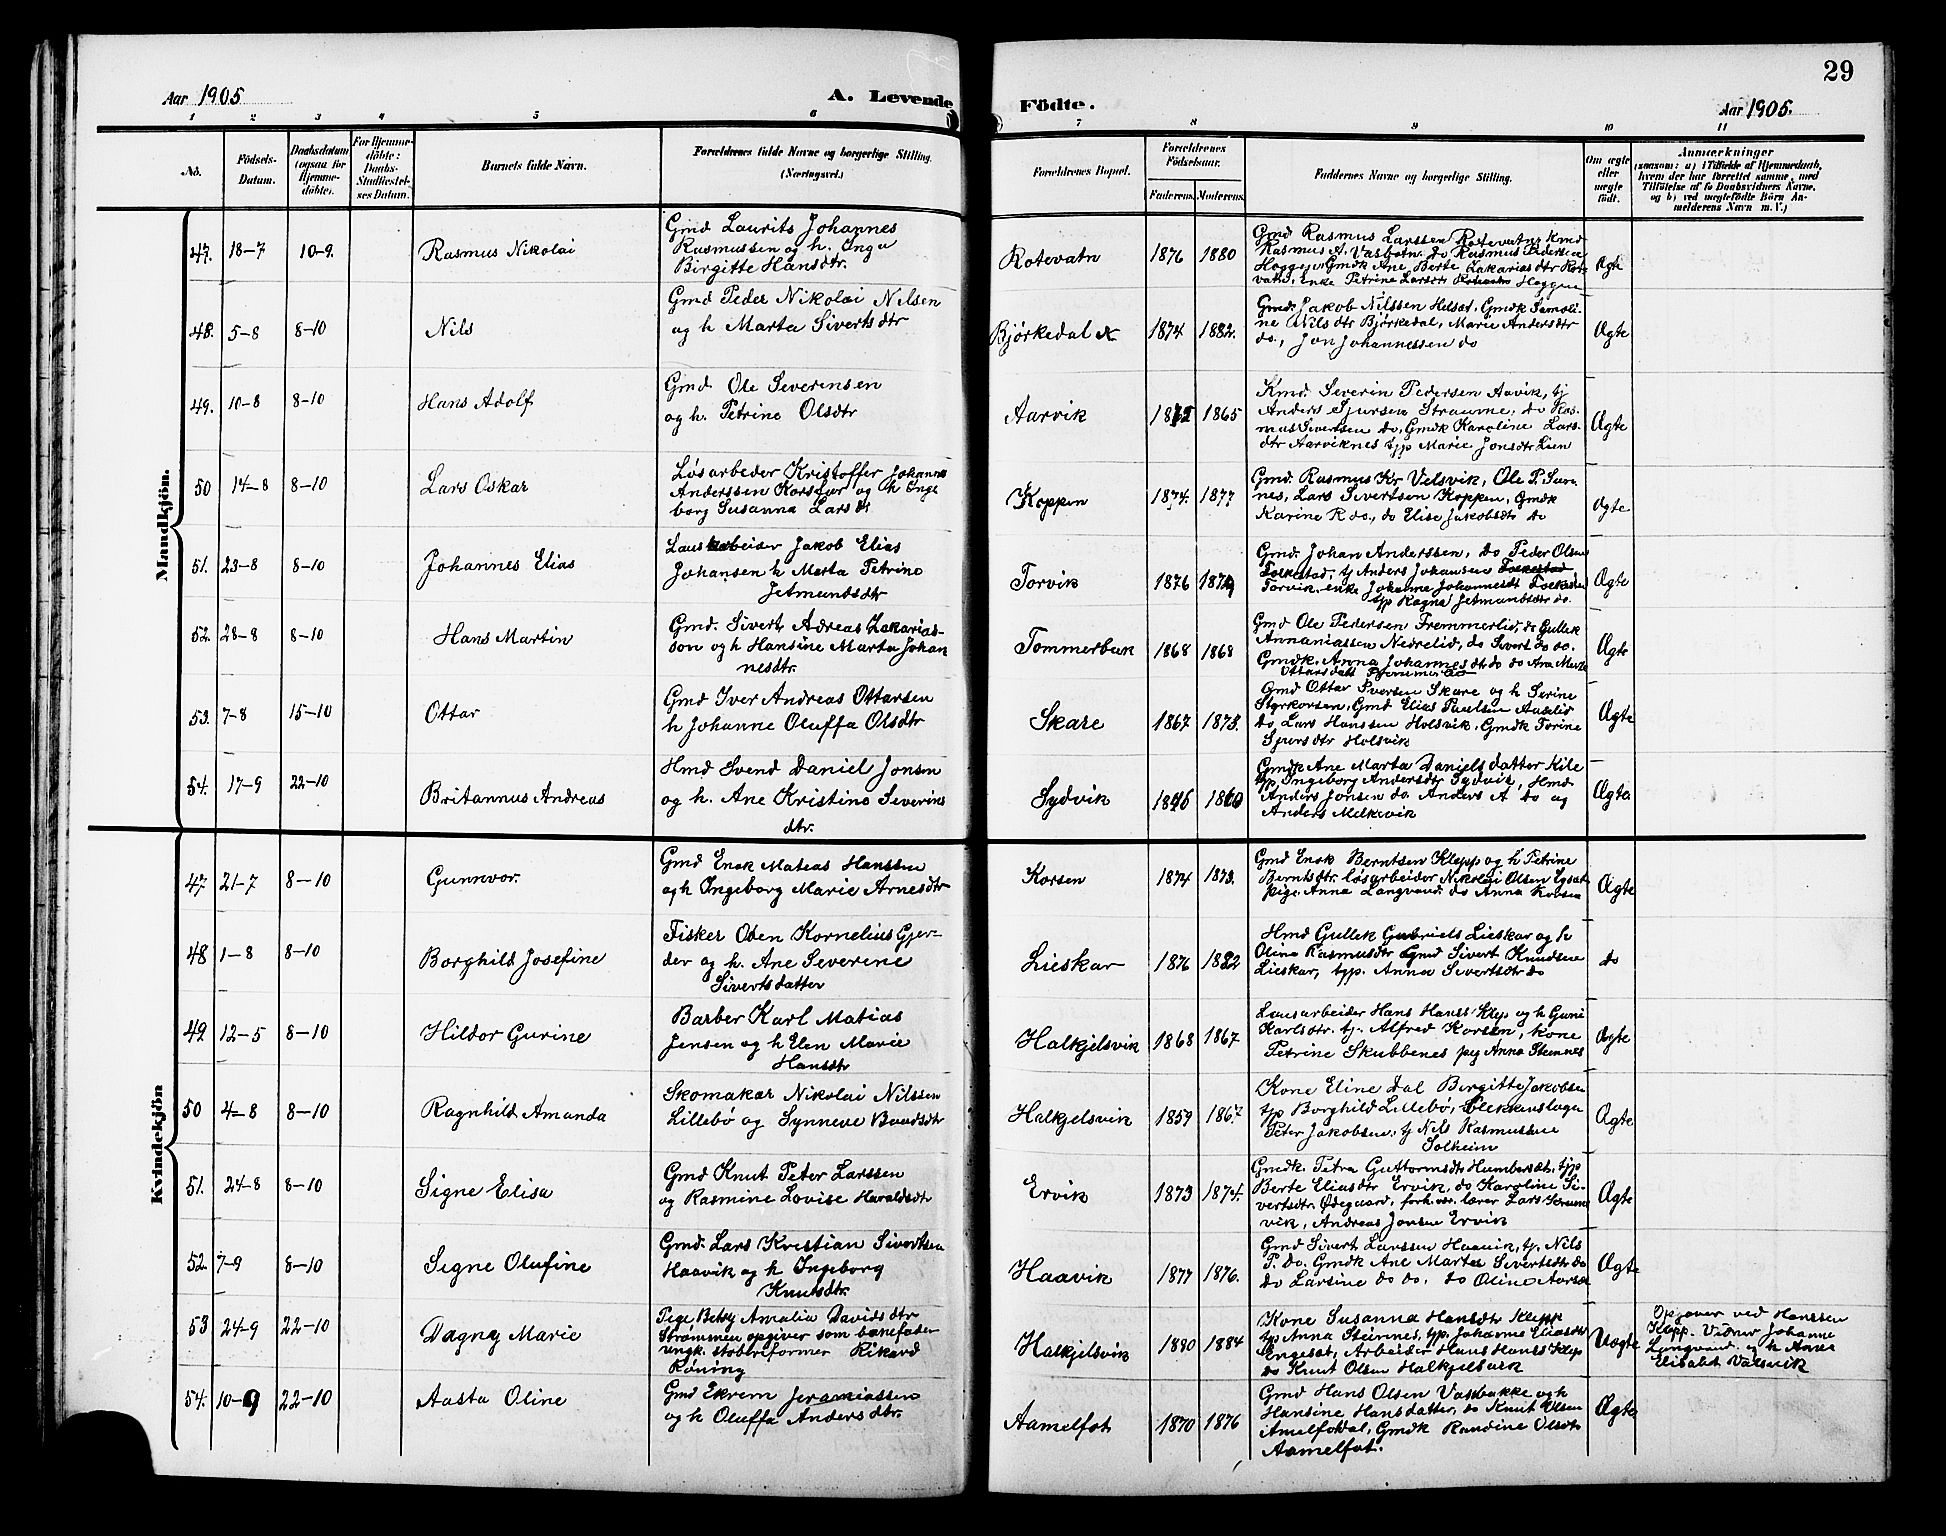 29
Aar 1905
A. Levende Födte.
Aar 1905.
1 2 3 4 5 6 7 8 9 10 11
No.
Födsels-
Datum.
Daabsdatum
(ogsaa for
Hjemme-
döbte).
For Hjemme-
döbte:
Daabs-
Stadfæstel-
ses Datum.
Barnets fulde Navn.
Forældrenes fulde Navne og borgerlige Stilling.
(Næringsvei.)
Forældrenes Bopæl.
Forældrenes
Födselsaar.
Faderens. Moderens.
Faddernes Navne og borgerlige Stilling.
Om ægte
eller
uægte
födt.
Anmærkninger
(saasom: a) i Tilfælde af Hjemmedaab,
hvem der har forrettet samme, med
Tilföielse af to Daabsvidners Navne,
og b) ved uægtefödte Börn An-
melderens Navn m. V.)
Mandkjön.
47. 18-7 10-9. Rasmus Nikolai
Gmd Laurits Johannes
Rasmussen og h. Inga
Birgitte Hansdtr.
Rotevatn 1876 1880
Gmd Rasmus Larssen Rotevatn, Kmd
Rasmus A. Vasbotn. do Rasmus Pedersen
Hoggen, Gmdk Ane Berte Zakariasdtr Rote
vatn, Enke Petrine Larsdtr Hoggen
Ægte
48. 5-8 8-10 Nils
Gmd Peder Nikolai Nilsen
og h Marta Sivertsdtr
Bjørkedal N 1874 1882.
Gmd. Jakob Nilssen Helset, Gmdk Samoli-
ne Nilsdtr Bjørkedal, Marie Andersdtr
do., Jon Johannessen do
Ægte
49. 10-8 8-10 Hans Adolf
Gmd Ole Severinsen
og h. Petrine Olsdtr
Aarvik 1865
Kmd. Severin Pedersen Aavik, tj
Anders Sjursen Straume, do Ras-
mus Sivertsen do, Gmdk Karoline Lars-
dtr Aarviknes typ Marie Jonsdtr Lien
Ægte
50 14-8 8-10 Lars Oskar
Løsarbeder Kristoffer Johannes
Anderssen Korsfur og h Inge
borg Susanna Larsdt
Koppen 1874. 1877
Gmd. Rasmus Kr Velsvik, Ole P. Sure-
nes, Lars Sivertsen Koppen, Gmdk
Karine R do., do Elise Jakobsdtr do
Ægte
51. 23-8 8-10 Johannes Elias
Lausarbeider Jakob Elias
Johansen h Marta Petrine
Jetmundsdtr
Torvik 1876 1879
Gmd. Johan Anderssen, do Peder Olsen
Folkestad, tj Anders Johansen Folkestad
Torvik. enke Johanna Johannesdt Folkestad
typ Ragna Jetmundsdtr do.
Ægte
52. 28-8 8-10 Hans Martin
Gmd. Sivert Adreas Zakarias-
son og h Hansine Marta Johan
nesdtr.
Tommerbak 1868 1868
Gmd Ole Pedersen Fremmerlid, do Gullik
Annaniassen Nedrelid, do Sivert do do.
Gmdk. Anna Johannesdtr do do Ana Marta
Ottarsdatt Fremmerlid
Ægte
53. 7-8 15-10 Ottar
Gmd Iver Andreas Ottarsen
h Johanne Oluffa Olsdtr
Skare 1867 1873.
Gmd Ottar Iversen Skare og h Serine
Styrkorsen, Gmd Elias Paulsen Aaselid
do Lars Hanssen Holsvik, Gmdk Torine
Sjursdtr Holsvik
Ægte
54. 17-9 22-10 Britannus Andreas
Hmd Svend Daniel Jonsen
og h. Ane Kristine Severins
dtr.
Sydvik 1860
Gmdk Ane Marta Daniels datter Kile
typ Ingeborg Andersdtr Sydvik, Hmd.
Anders Jonsen do. Anders A do og
Anders Melkevik
Ægte.
Kvindekjön
47 21-7 8-10 Gunnvor.
Gmd Enok Matias Hanssen
og h Ingeborg Marie Arnesdtr
Korsen 1874 1873.
Gmd Enok Berntsen Klepp og h Petrine
Berntsdtr. løsarbeider Nikolai Olsen Egset
pige Anna Langvand. do Anna Korsen
Ægte
48 1-8 8-10 Borghild Josefine
Fisker Oten Kornelius Gjer-
der og h. Ane Severine
Sivertsdatter
Lieskar 1876 1882
Hmd Gullek Gabriels Lieskar og h
Olina Rasmusdtr Gmd Sivert Knudsen
Lieskar, typ. Anna Sivertsdtr do
do
49 12-5 8-10 Hildor Gurine
Barber Karl Matias
Jensen og h Elen Marie
Hansdtr
Halkjelsvik 1868 1867
Lausarbeider Hans Hanss Klep og h Guri
Karlsdtr. tj. Alfred Korsen, kone
Petrine Skubbenes pig Anna Steinnes
Ægte
50 4-8 8-10 Ragnhild Amanda
Skomakar Nikolai Nilssen
Lillebø og Synneve Baardsdtr
Halkjelsvik 1859 1867.
Kone Eline Dal Birgitte Jakobsen
typ Borghild Lillebø, Blekkenslager
Peter Jakobsen, tj Nils Rasmussen
Solheim
Ægte
51. 24-8 8-10 Signe Elisa
Gmd Knut Peter Larssen
og Rasmine Lovise Haraldsdtr
Ervik 1873 1874.
Gmdk. Petra Guttormsdtr Humberset, typ
Berte Eliasdtr Ervik, do Karoline Si-
vertsdtr. Ødegaard, forh.vær. lærer Lars
vik, Andreas Jonsen Ervik
Ægte
52. 7-9 8-10 Signe Olufine
Gmd. Lars Kristian Sivertsen
Haavik og h Ingeborg
Knutsdtr.
Haavik 1877 1876.
Gmd Sivert Larssen Haavik, tj. Nils
P. do. Gmdk Ane Martes Sivertsdtr do
do Larsine do do. do Oline Aarset
Ægte
53 24-9 22-10 Dagny Marie
Pige Betsy Amalia Davidsdtr
Strømmen opgiver som barnefader
ungk. støbriformer Rikard
Røning
Halkjelsvik 1880 1884
Kone Susanna Hansdtr Klepp
typ Anna Steinnes, typ. Johanne Eliasdtr
Engeset, Arbeider Hans Hanss Klep
do Knut Olsen Halkjelsvik
Uægte
Opgaver ved Hanssen
Klepp. Vidner Johanne
Langvand. og h Anne
Elisabet Valsvik
54. 10-9 22-10 Aasta Oline
Gmd Ekrem Jeramiassen
og h Oluffa Andersdtr.
Aamelfot 1870 1876
Gmd Hans Olsen Vasbakke og h
Hansine Hansdatter, do Knut Olsen
Amelfotdal, Gmdk Randine Olsdtr
Aamelfot.
Ægte